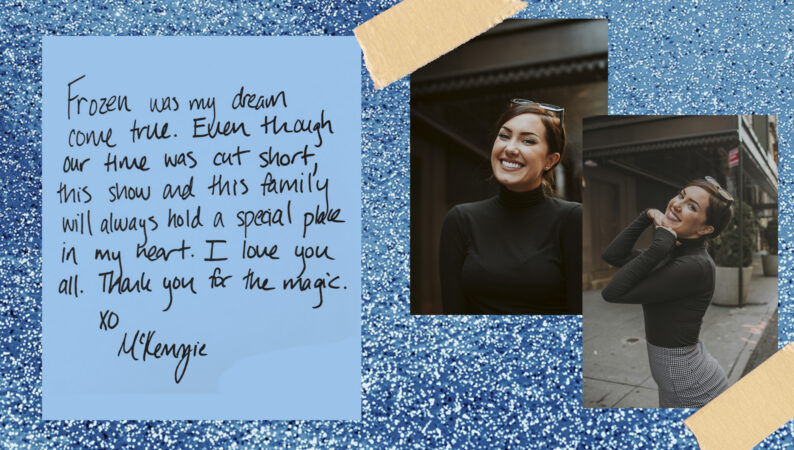 Frozen was my dream
come true. Even though
our time was cut short,
this show and this family
will always hold a special place
in my heart. I love you
all. Thank you for the magic.
XO
McKenzie